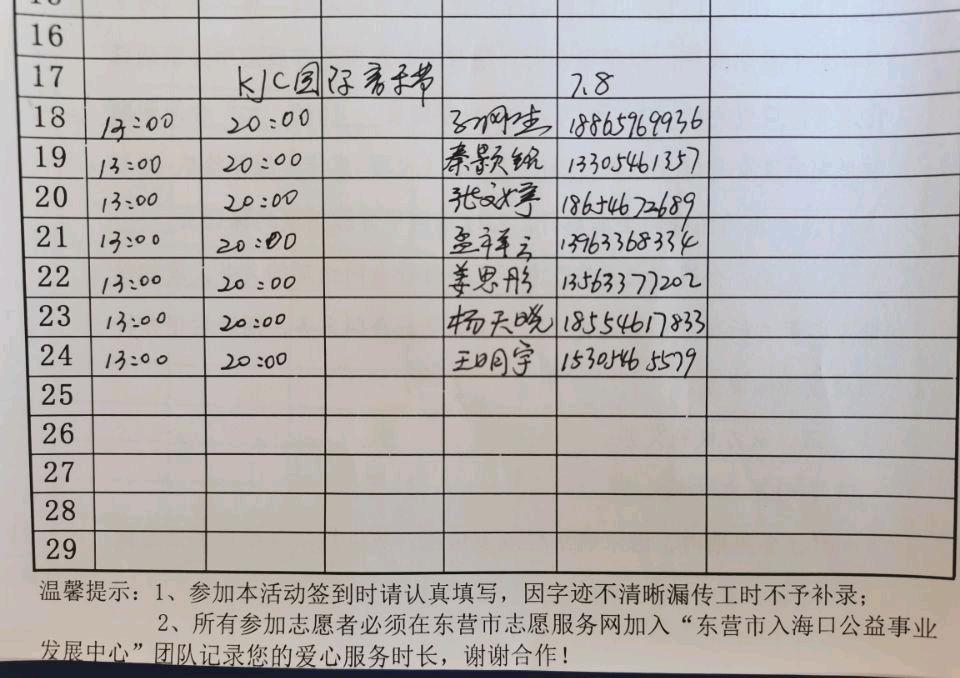 16
17 KJC国际音乐节 7.8
18 13:00 20:00 18865969936
19 13:00 20:00 秦颢铭 13305461357
20 13:00 20:00 张文婷 18654672689
21 13:00 20:00 孟祥云 13963368334
22 13:00 20:00 姜思彤 13563377202
23 13:00 20:00 杨天晓 18554617833
24 13:00 20:00 王明宇 15305465579
25
26
27
28
29
温馨提示：1、参加本活动签到时请认真填写，因字迹不清晰漏传工时不予补录；
2、所有参加志愿者必须在东营市志愿服务网加入“东营市入海口公益事业
发展中心”团队记录您的爱心服务时长，谢谢合作！